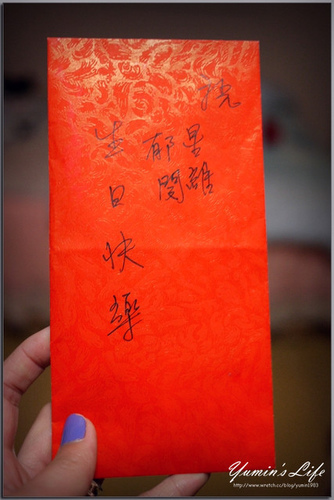 祝
郁閔
生日快樂
Yumin's Life
http://www.wretch.cc/blog/yumin1983